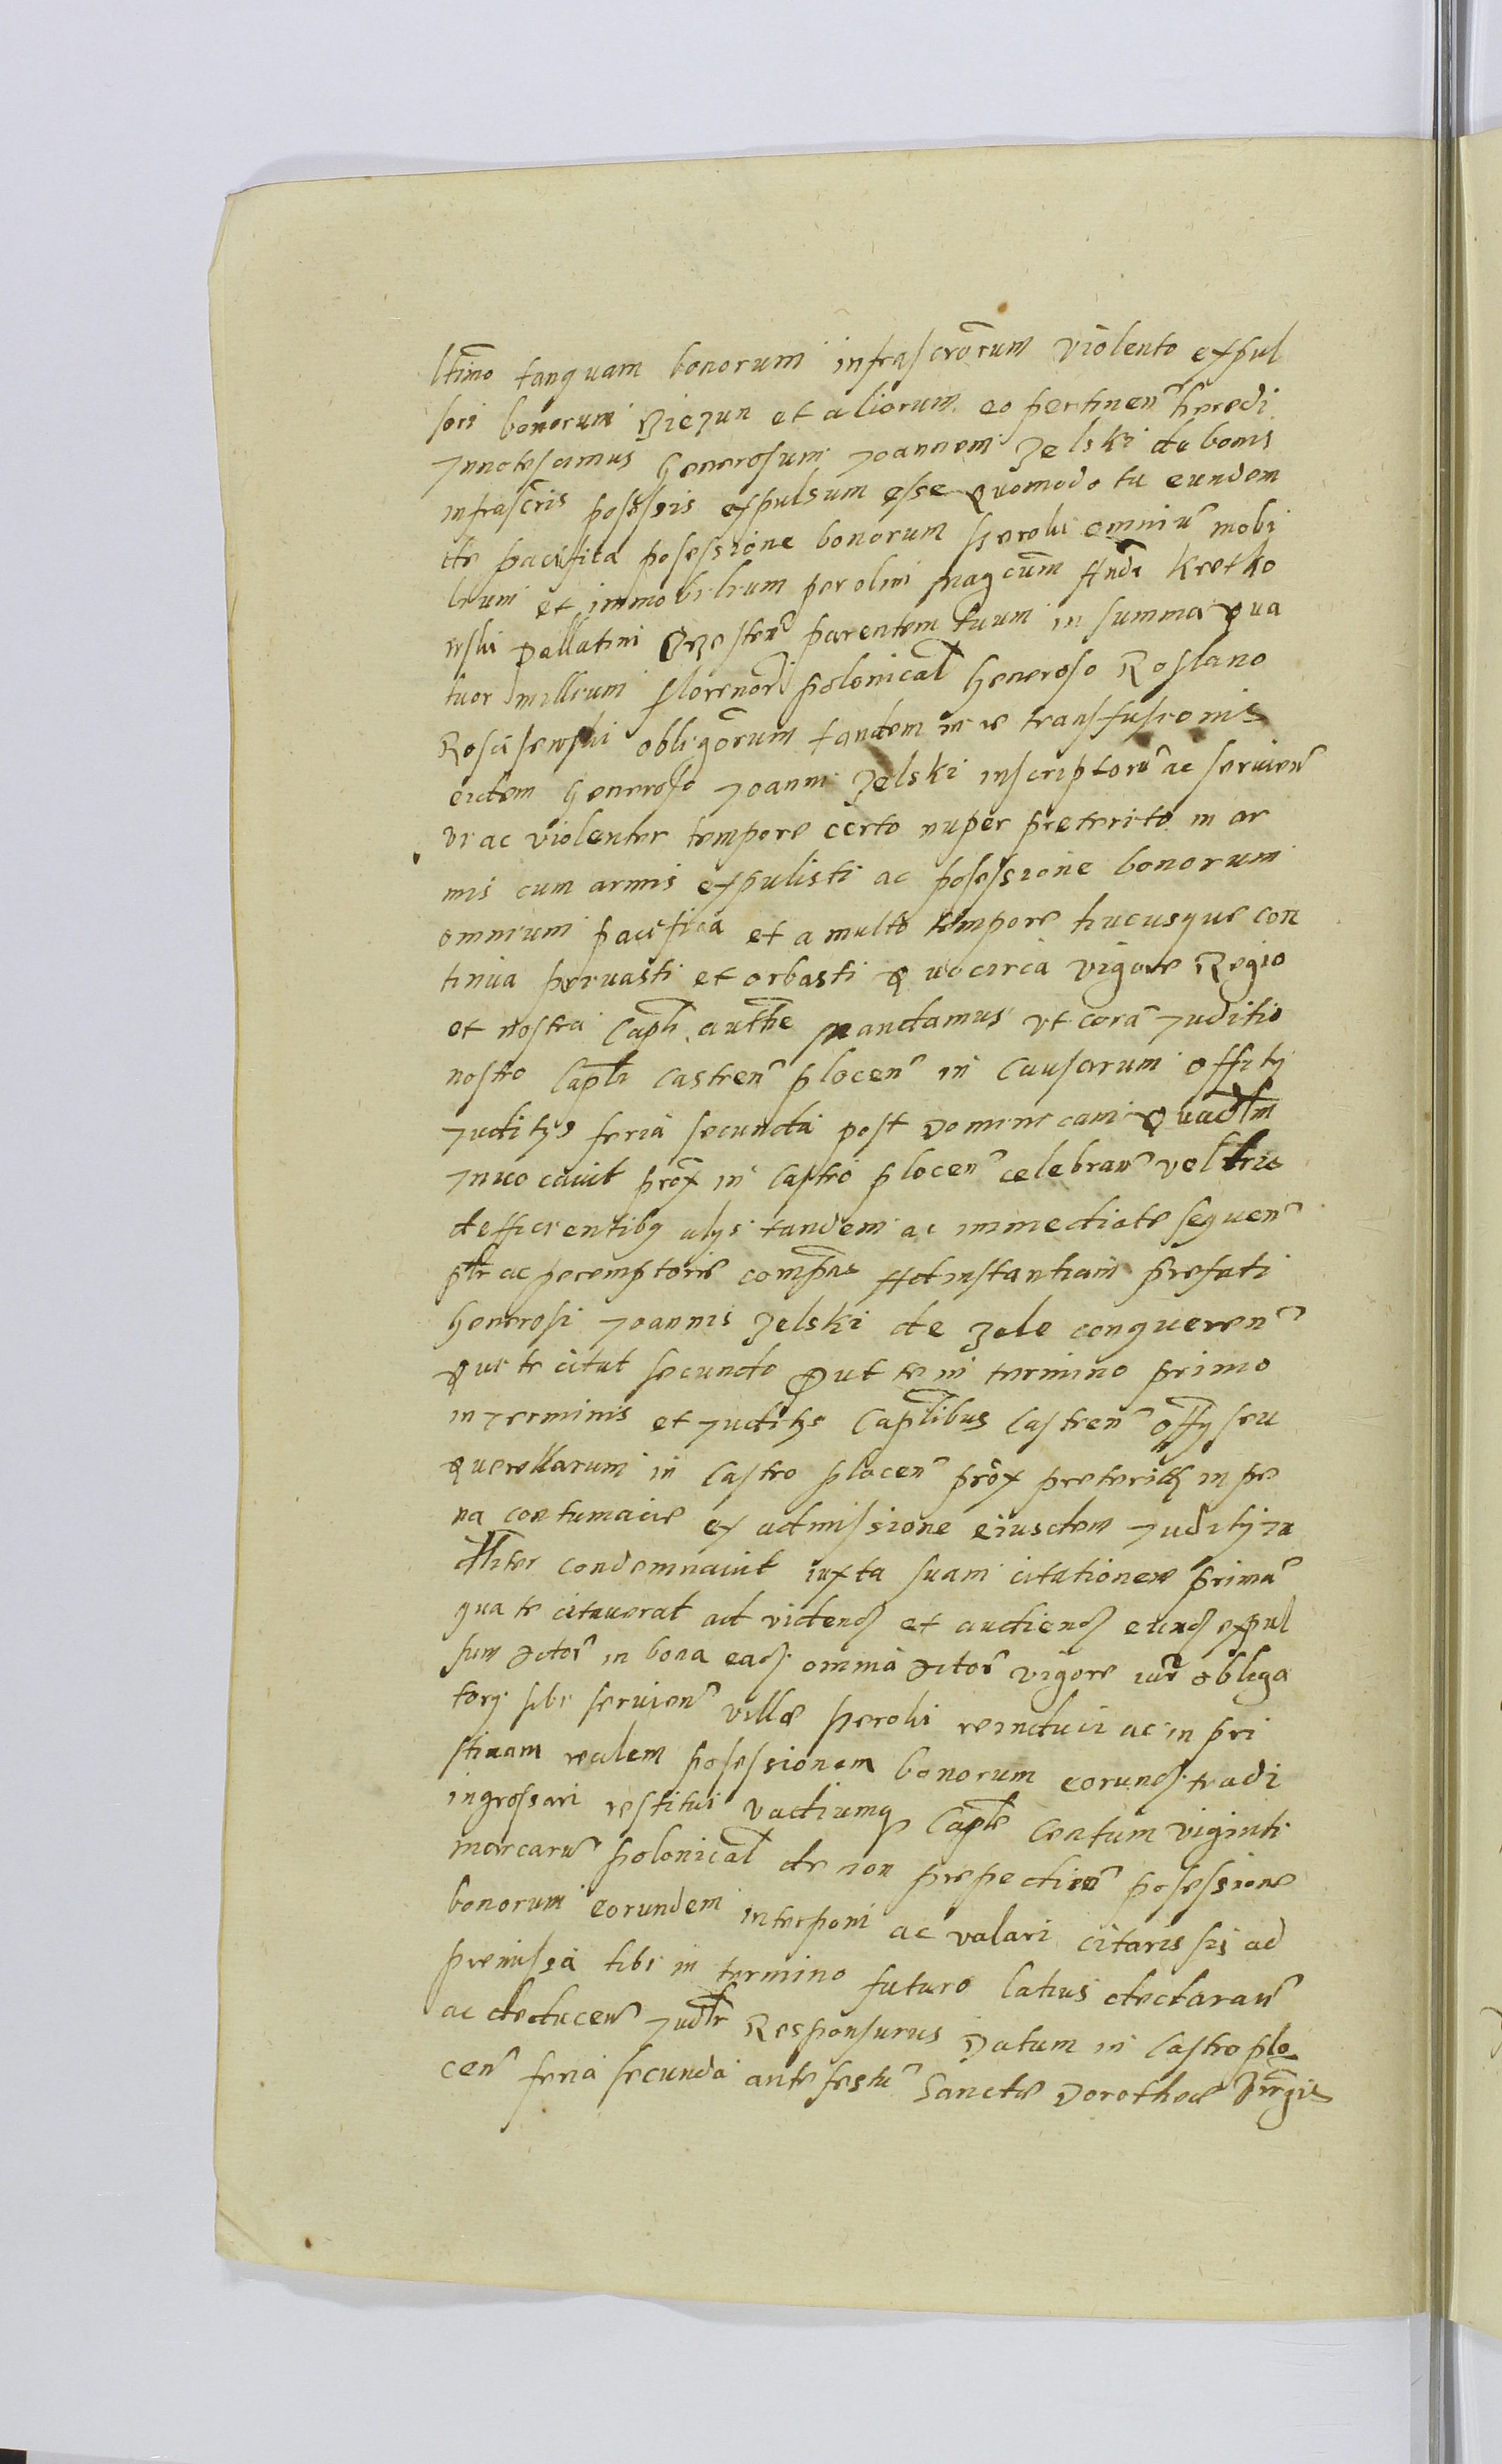 ltimo tanquam bonorum infrascrorum violento expul
sori bonorum Biezun et aliorum eo pertinen heredi
Innotescimus Generosum Joannem Zelski de bonis
infrascris possesis expulsum esse Quomodo tu eundem
de pacifica posessione bonorum Sieroki omniu mobi
lium et immobilium per olim Magcum Andr Kretko
wski Pallatini Brzesten parentem tuum in summa qua
tuor millium florenor polonical Generoso Roslano
Rosciszewski obligorum tandem in re transfusionis
eidem Generoso Joanni Zelski inscriptoru ac servien
vi ac violenter tempore certo nuper preterito in ar
mis cum armis expulisti ac posessione bonorum
omnium pacifica et a multo tempore hucusque con
tinua privasti et orbasti Quocirca vigore Regio
et nostra Capli authe Mandamus vt cora Juditio
nostro Capli Castren Plocen in Causarum offity
Juditys feria secunda post Dominicam Quadlm
Inuocauit prox in Castro Plocen celebran vel his
defficientibq alys tandem ac immediate sequen
plr ac peremptorie compas Ad instantiam prefati
Generosi Joannis Zelski de Zele conqueren
Qui te citat secundo Put te in termino primo
in terminis et Juditys Caplibus Castren offy seu
Querellarum in Castro Plocen prox preteritis in pe
na contumacie ex admissione eiusdem Judity Ju
dliter condemnavit iuxta suam citationem prima
qua te citaverat ad videnq et audienq eunq expul
sum Actor in bona eadq omnia Actor vigore iur obliga
tory sibi servien villæ Sieroki reinduci ac in pri
stinam realem posessionem bonorum eorunq tradi
ingrossari restitui vadiumq Caple Centum viginti
marcaru polonical de non prepedien posessione
bonorum eorundem interponi ac valari citaris sis ad
premissa tibi in termino futuro latius declaran
ac deducen Judlr Responsurus Datum in Castro Plo
cen feria secunda ante festu Sancte Dorothee Virgis